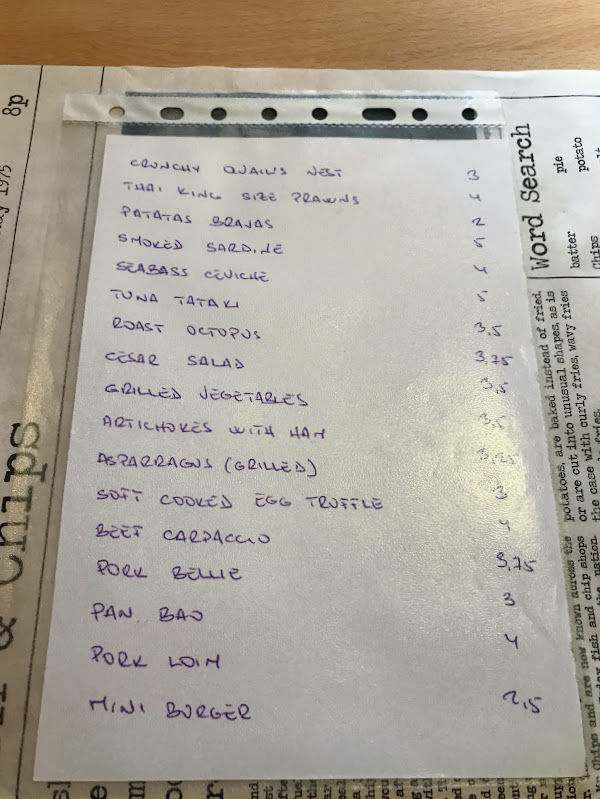 CRUNCHY QUAIL'S NEST 3
THAI KING SIZE PRAWNS 4
PATATAS BRAVAS 2
SMOKED SARDINE 5
SEABASS CEVICHE 4
TUNA TATAKI 5
ROAST OCTOPUS 3,5
CESAR SALAD 3,75
GRILLED VEGETABLES 3,5
ARTICHOKES WITH HAM 3,5
ASPARRAGUS (GRILLED)
SOFT COOKED EGG TRUFFLE 3
BEEF CARPACCIO 4
PORK BELLIE 3,75
PAN BAO 3
PORK LOIN 4
MINI BURGER 2,5
8p
1975
& Chips
Word Search
pie
potato
batter
Chips
potatoes, are baked instead of fried,
or are cut into unusual shapes, as is
the case with curly fries, wavy fries
and are now known across the
fish and chip shops
the nation.